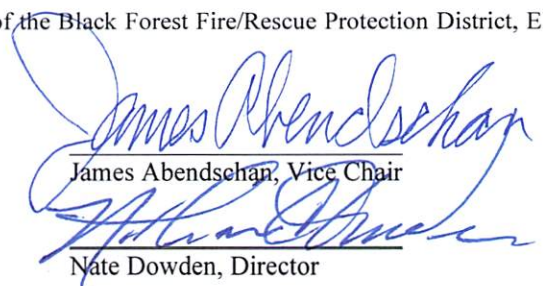 of the Black Forest Fire/Rescue Protection District, E
James Abendschan
James Abendschan, Vice Chair
Nate Dowden, Director